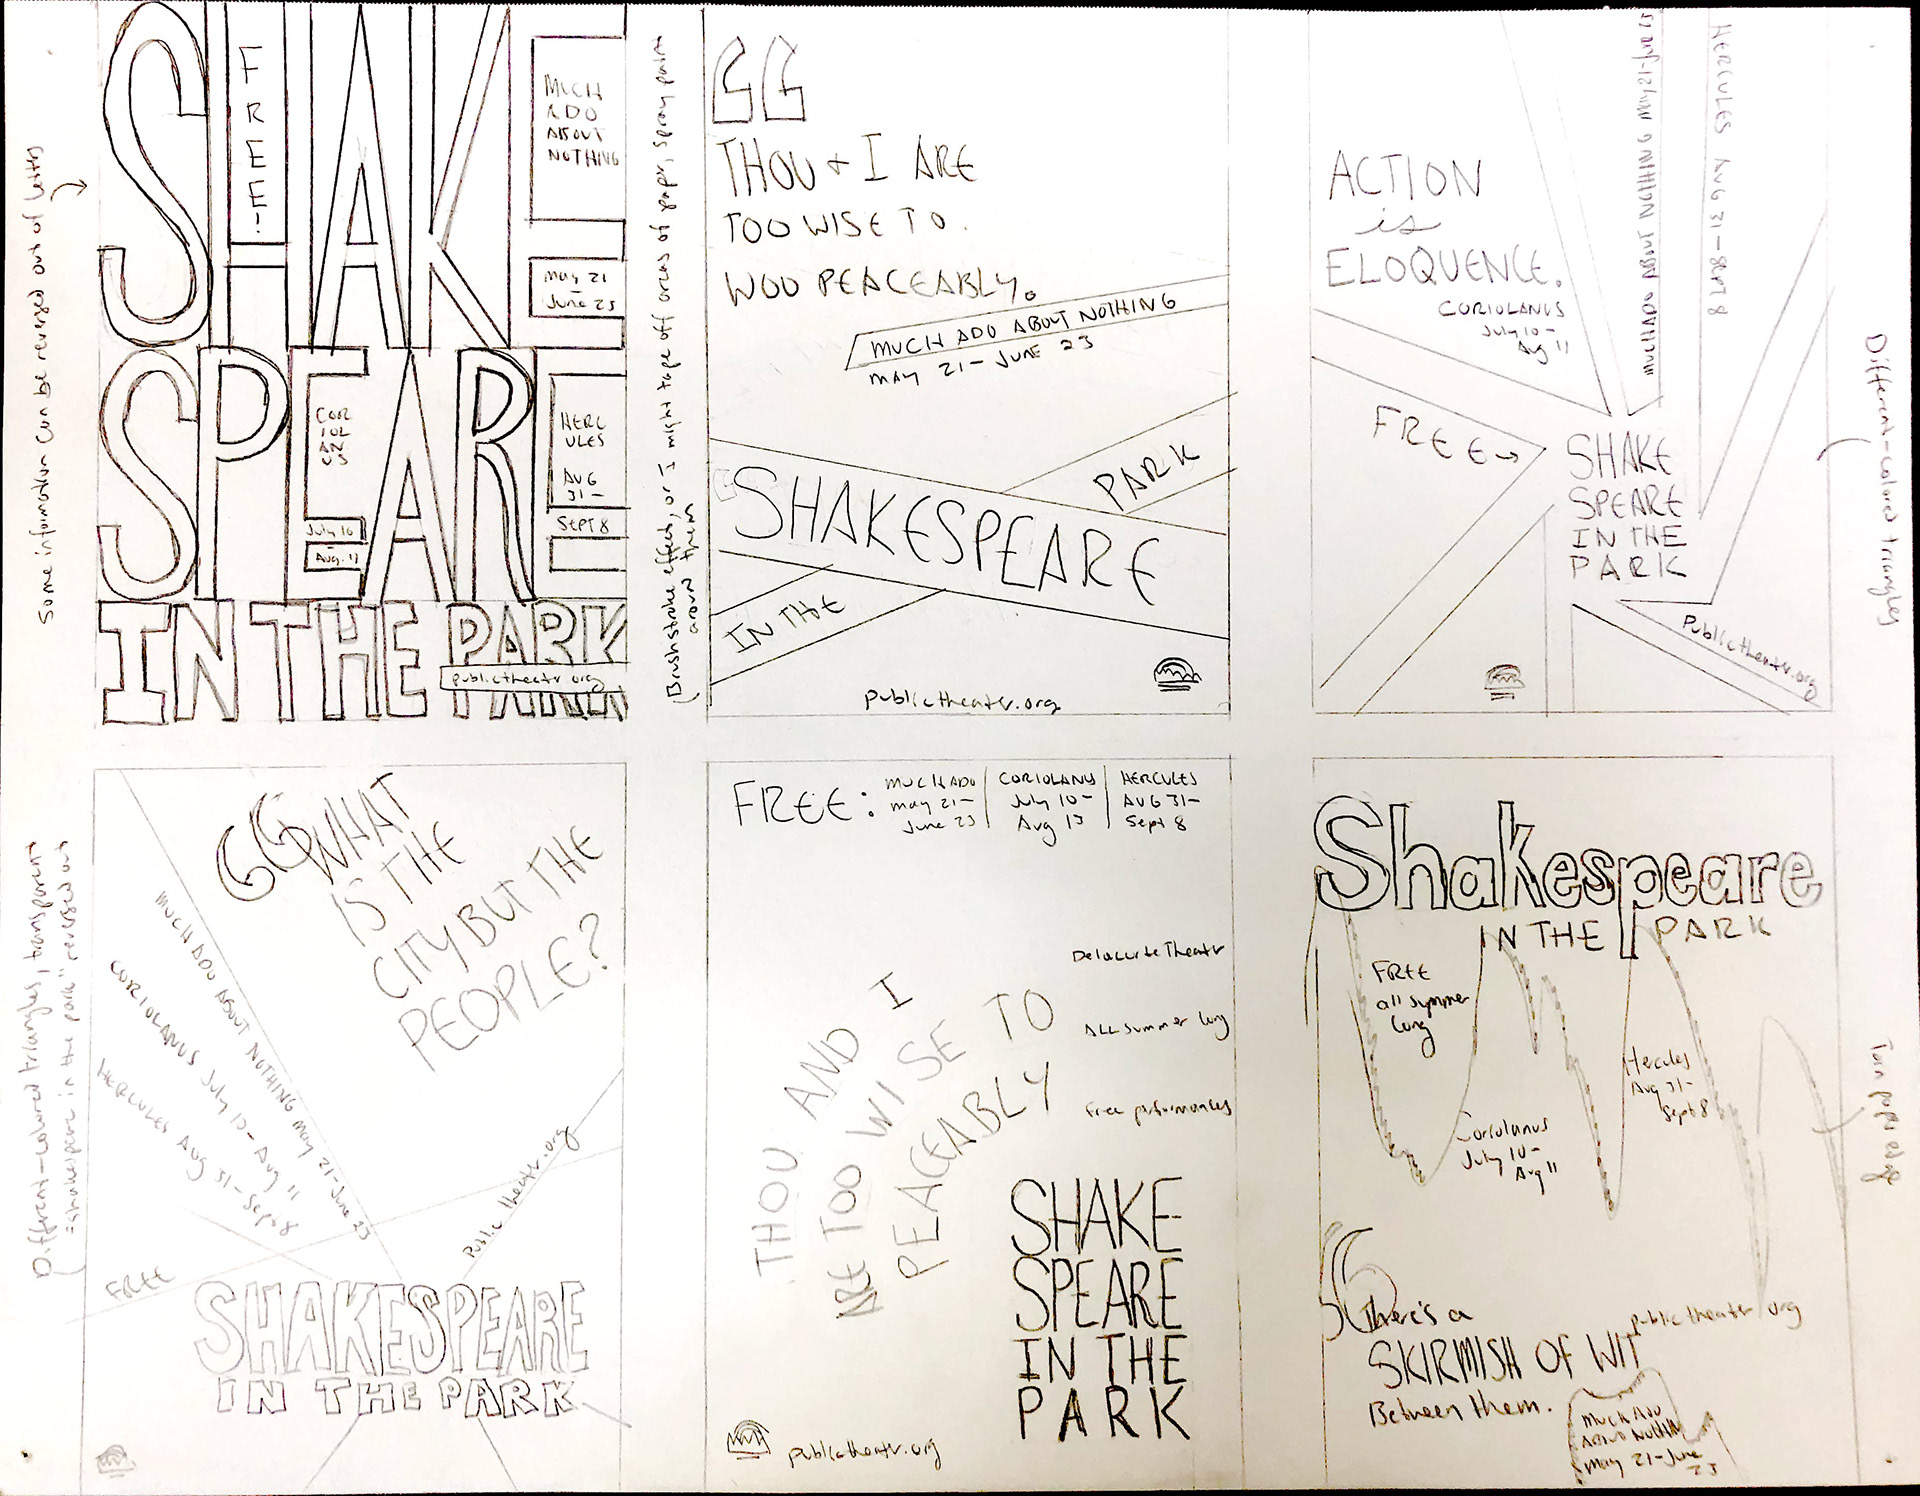 Some information can be reversed out of letters
SHAKE
FREE!
MUCH
ADO
ABOUT
NOTHING
May 21
-
June 23
SPEARE
COR
IOL
AN
US
July 10
-
Aug. 11
HERC
ULES
AUG
31-
SEPT 8
IN THE PARK
publictheatr.org
(Brushstroke effect, or I might tape off areas of paper, spray paint
around them
THOU + I ARE
TOO WISE TO
WOO PEACEABLY.
MUCH ADO ABOUT NOTHING
MAY 21 - JUNE 23
SHAKESPEARE
IN THE
PARK
publictheatr.org
ACTION
is
ELOQUENCE.
CORIOLANUS
July 10-
Aug 11
MUCH ADO ABOUT NOTHING May 21-June 23
HERCULES AUG 31-SEPT 8
FREE→
SHAKE
SPEARE
IN THE
PARK
Publictheatr.org
Different-colored triangles
Different-colored triangles, transparent
"shakespeare in the park" reversed out
“WHAT
IS THE
CITY BUT THE
PEOPLE?
MUCH ADO ABOUT NOTHING May 21-June 23
CORIOLANUS July 10-Aug 11
HERCULES Aug 31-Sept 8
Public theatr.org
FREE
SHAKESPEARE
IN THE PARK
FREE:
MUCH ADO
may 21-
June 23
CORIOLANU
July 10-
Aug 13
HERCULES
AUG 31-
Sept 8
Delacurte Theatr
ALL summer long
Free performances
THOU AND I
ARE TOO WISE TO
PEACEABLY
SHAKE
SPEARE
IN THE
PARK
publictheatr.org
Shakespeare
IN THE PARK
FREE
all summer
long
Hercules
Aug 31-
Sept 8
Coriolanus
July 10-
Aug 11
Torn paper edge
“There's a
SKIRMISH OF WIT
Between them.
publictheatr org
MUCH ADO
ABOUT NOTHIN
May 21-June
23